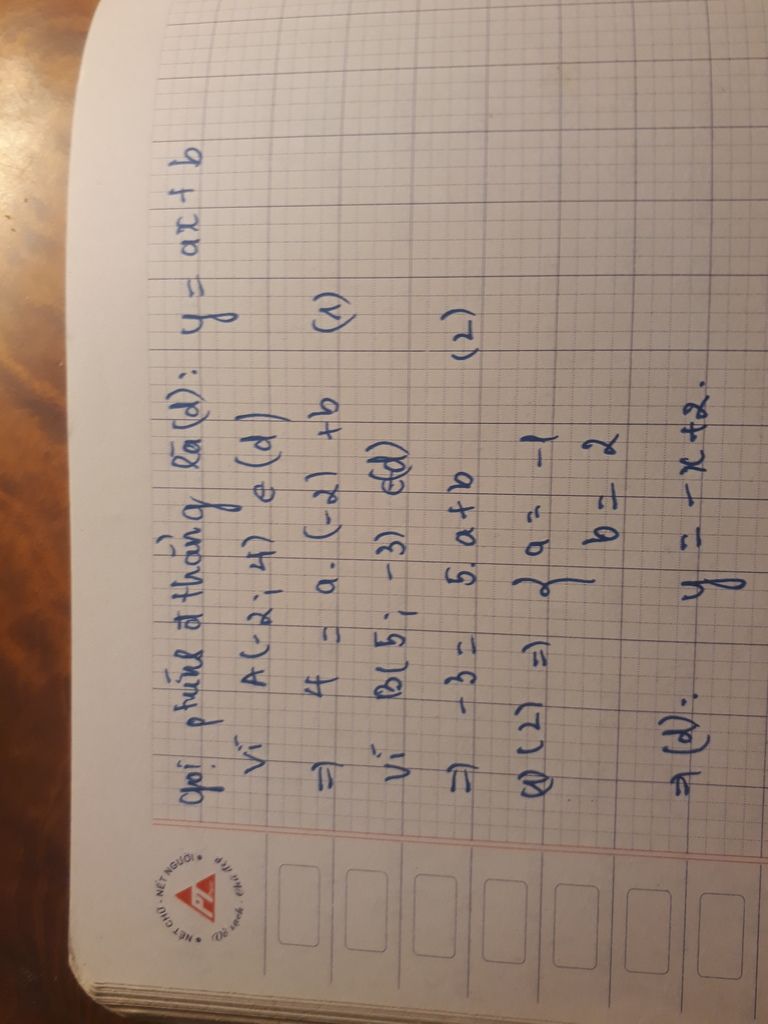 gọi phtrình đ thẳng là (d): y = ax + b
Vì A(-2; 4) ∈ (d)
=> 4 = a. (-2) + b (1)
Vì B(5; -3) ∈(d)
=> -3 = 5.a+b (2)
(1)(2) => { a = -1
b = 2
=> (d): y = -x+2.
NÉT CHỮ - NẾT NGƯỜI
PL
Vở sạch - Chữ đẹp